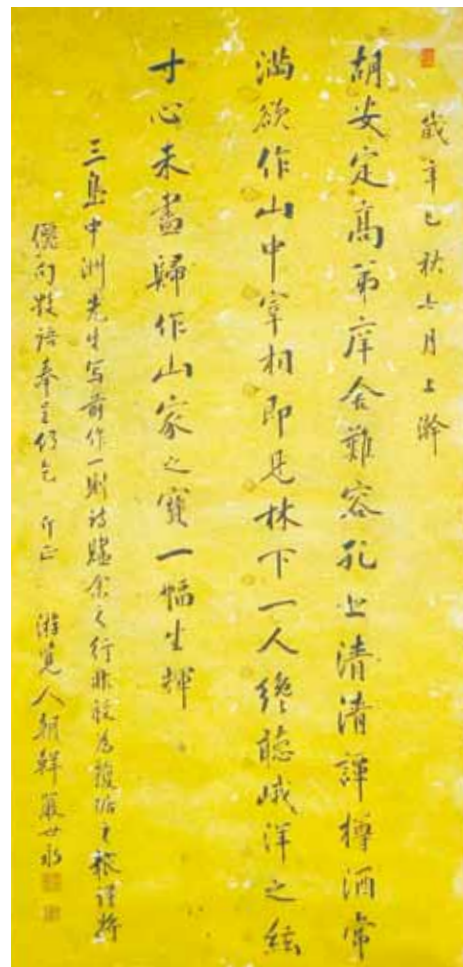 歲辛巳秋七月上澣
胡安定高弟庠舍難容孔北海清譚樽酒常
滿欲作山中宰相即見林下一人纔聽峨洋之絃
寸心未盡歸作山家之寶一幅生輝
三島中洲先生写前作一則詩贐余之行非敢為之報謹將
儷句數語奉呈仍乞 斤正 游覽人朝鮮嚴世永